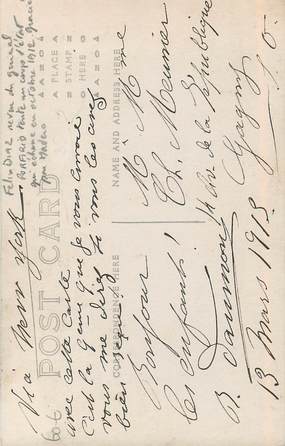 Felix DIAZ neveu du général
PORFIRIO tente un coup d'état
qui échoue en octobre 1912 grace
par Madero
Via New York
POST CARD
PLACE
STAMP
HERE
CORRESPONDENCE HERE
NAME AND ADDRESS HERE
avec cette carte
C'est la 9ème que je vous envoie
vous me direz si vous les avez
bien
Bonjour
les enfants!
B. Daumont
13 Mars 1913
M. & Mme
Ch. Meunier
de la République
Gagny
S. O.